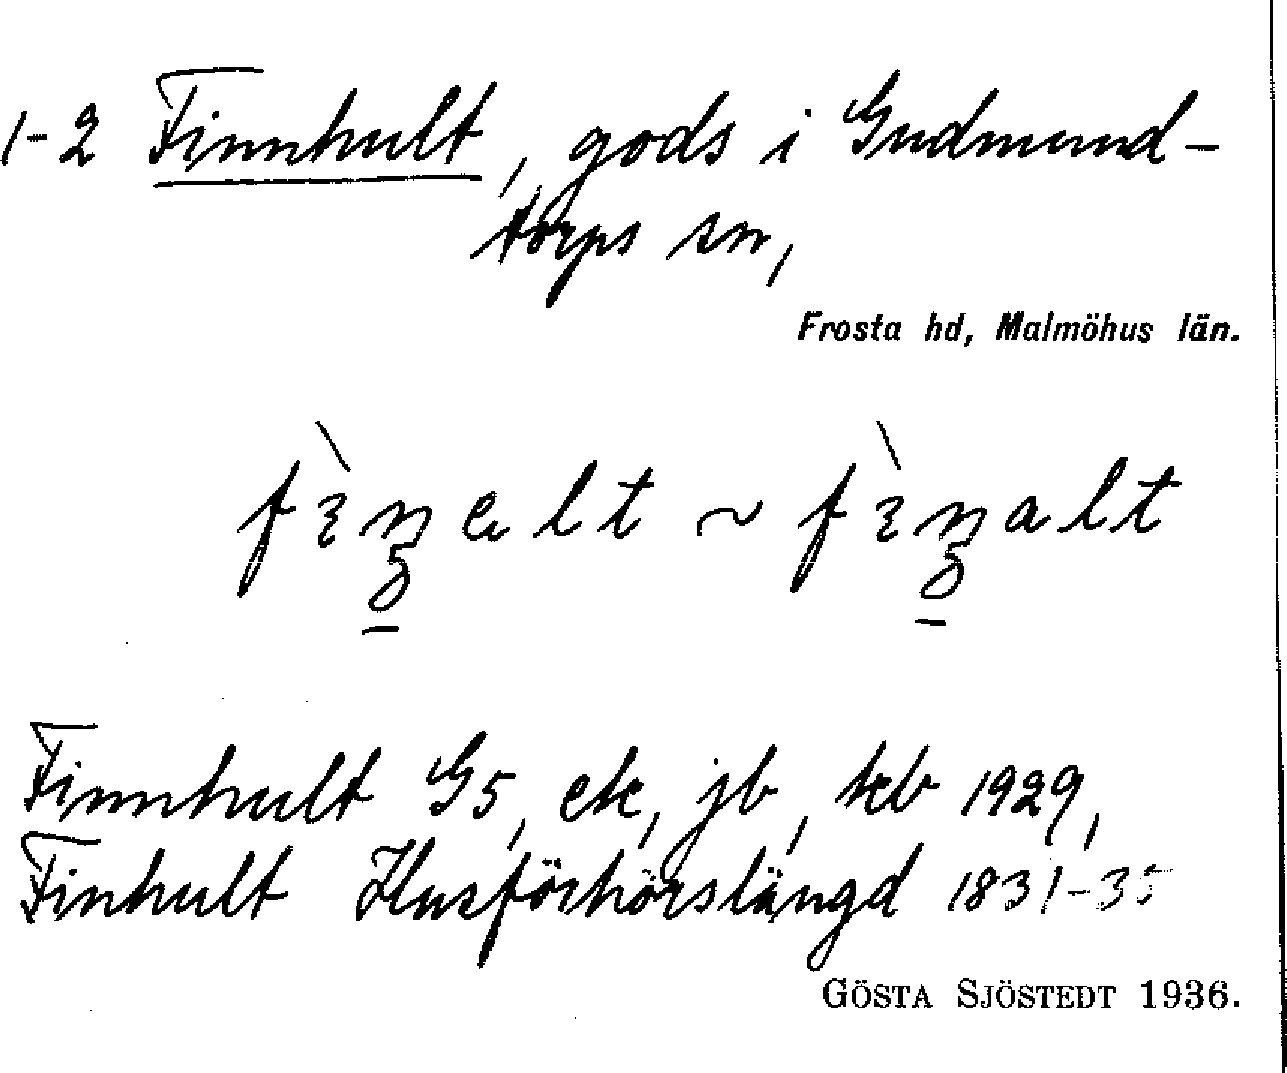 1-2 Finnhult, gods i Gudmund-
torps sn,
Frosta hd, Malmöhus län.
Finnhult G5, ek, jb, kb 1929,
Finhult Husförhörslängd 1831-35
GÖSTA SJÖSTEDT 1936.